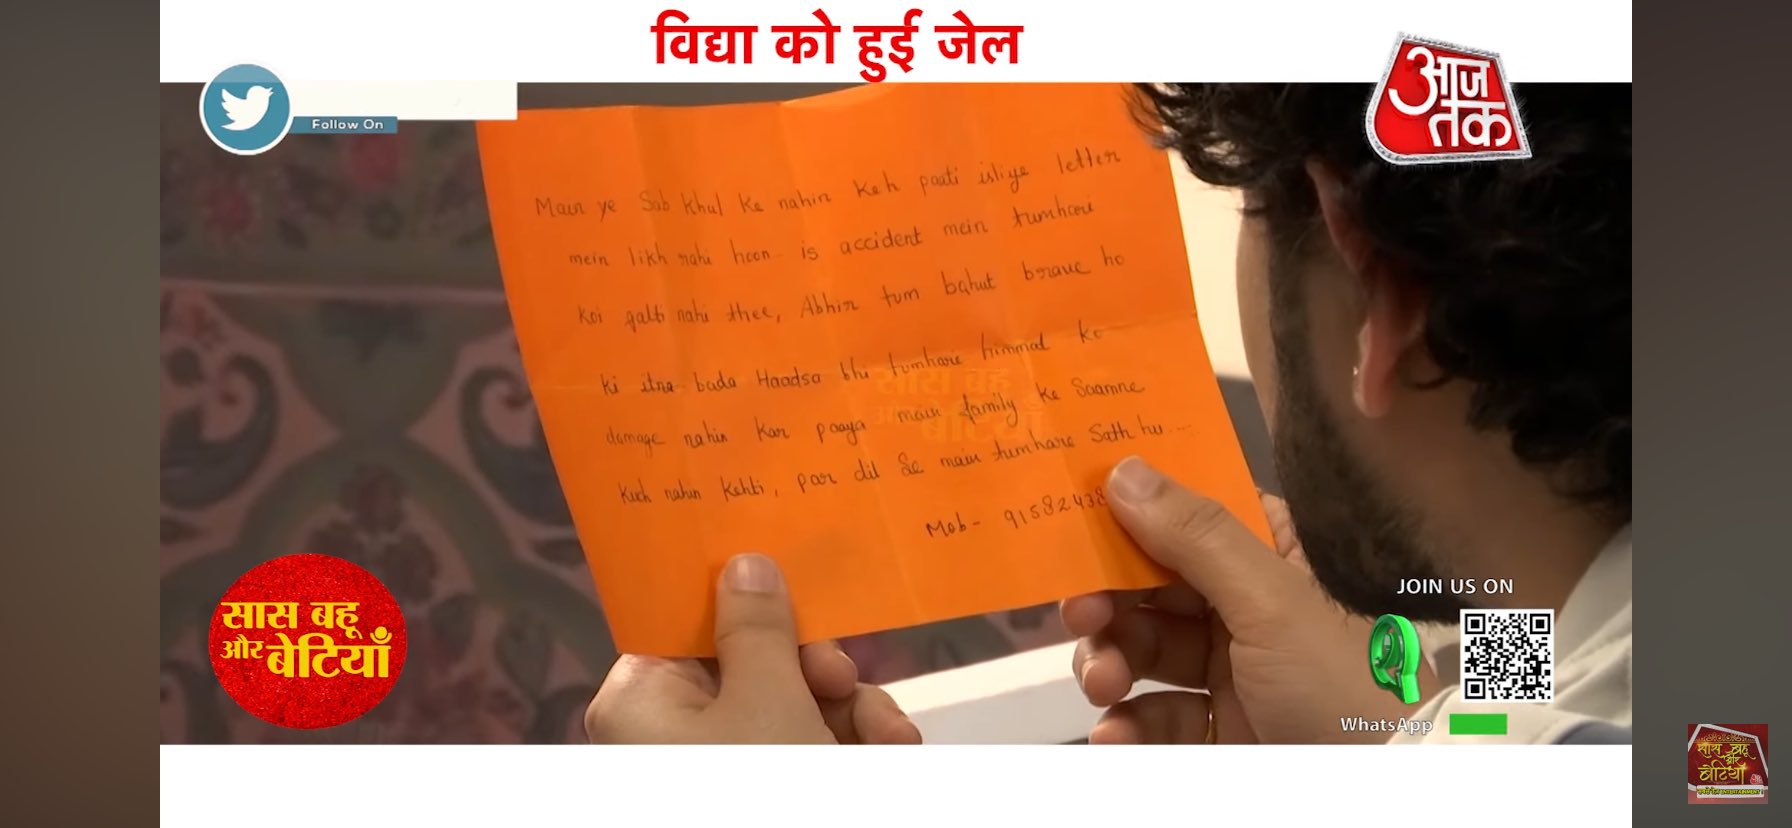 विद्या को हुई जेल
आज
तक
Follow On
Main ye Sab Khul Ke nahin Keh paati isliye letter
mein likh rahi hoon is accident mein tumhari
Koi galti nahi thee, Abhir tum bahut brave ho
ki itna bada Haadsa bhi tumhare himmat ko
damage nahin kar paaya main family ke Saamne
Kuch nahin Kehti, par dil Se main tumhare Sath hu.....
Mob - 91582438
सास बहू
और बेटियाँ
सास बहू
और बेटियाँ
JOIN US ON
WhatsApp
सास बहू
और
बेटियाँ